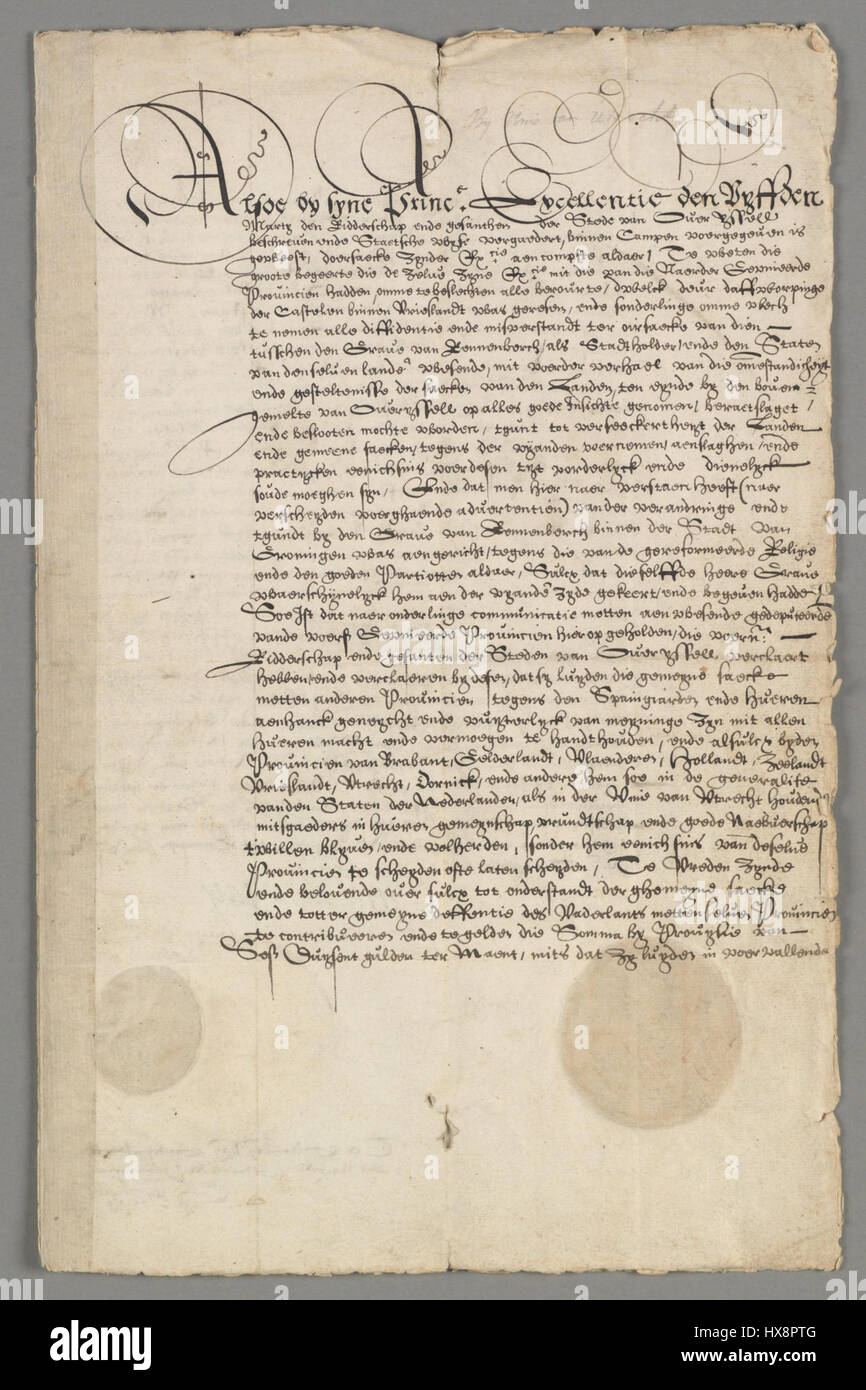 Alsoe by syne Princ.e Excellentie den Vyffden
Martz den Ridderschap ende gesanthen der Stede van Over Yssell
beschreven ende Staetsche wyse vergaedert, binnen Campen voergegeven is
geweest, doersaecke Zynder Ex.cie aencompste aldaer, Te weten die
groote begeerte die de Zelve Zyne Ex.cie mit die van die Naerder Geunieerde
Provincien hadden, omme te beslechten alle beroerte, dwelck deur d'affworpinge
der Castelen binnen Vrieslandt was geresen, ende sonderlinge omme wech
te nemen alle diffidentie ende misverstandt ter oirsaecke van dien
tusschen den Grave van Rennenberch, als Stadtholder, ende den Staten
van denselven lande wesende, mit vorder verhael van die omestandicheyt
ende gesteltenisse der saecken van den Landen, ten eynde by den boven
gemelte van Overyssell op alles goede Insichte genomen, beraetslaget
ende beslooten mochte worden, tgunt tot verseeckertheyt der Landen
ende gemeene saecken, tegens der vyanden voernemen, aenslaghen, ende
practycken eenichsins voer desen tyt vorderlyck ende dienelyck
soude moeghen syn, Ende dat men hier naer verstaen heeft (naer
verscheyden voerghaende advertentien) van der verandringe ende
tgundt by den Grave van Rennenberch binnen der Stadt van
Groningen was aengericht, tegens die van de gereformeerde Religie
ende den goeden Partiotten aldaer, Sulcx dat dieselffde heere Grave
waerschynelyck hem aen der vyande Zyde gekeert, ende begeven hadde
Soe Ist dat naer onderlinge communicatie metten aenwesende gedeputeerde
vande voers. Geunieerde Provincien hier op geholden, die voern.
Ridderschap ende gesanten der Steden van Overyssell verclaert
hebben, ende verclaeren by desen, dat sy luyden die gemeyne saecke
metten anderen Provincien, tegens den Spaingiarden ende hueren
aenhanck geneycht ende vuyterlyck van meyninge Zyn mit allen
hueren macht ende vermoegen te handthouden, ende alsulcx by den
Provincien van Brabant, Gelderlandt, Vlaenderen, Hollandt, Zeelandt
Vrieslandt, Vtrecht, Dornick, ende andere hem soe in de generalite
van den Staten der Nederlanden, als in der Unie van Utrecht houdend
mitsgaeders in hueren gemeynschap, vrundtschap ende goede Naebuerschap
twillen blyven, ende volherden, sonder hem eenichsins van deselve
Provincien te scheyden ofte laten scheyden, Te Vreden Zynde
ende belovende over sulcx tot onderstandt der ghemeyne saecke
ende totter gemeyne deffentie des Vaderlants metten selven Provincien
te contribueeren ende te gelden die Somma by Provysie van
Sess Duysent gulden ter Maent, mits dat Zy luyden in voervallende
alamy stock photo
HX8PTG
www.alamy.com